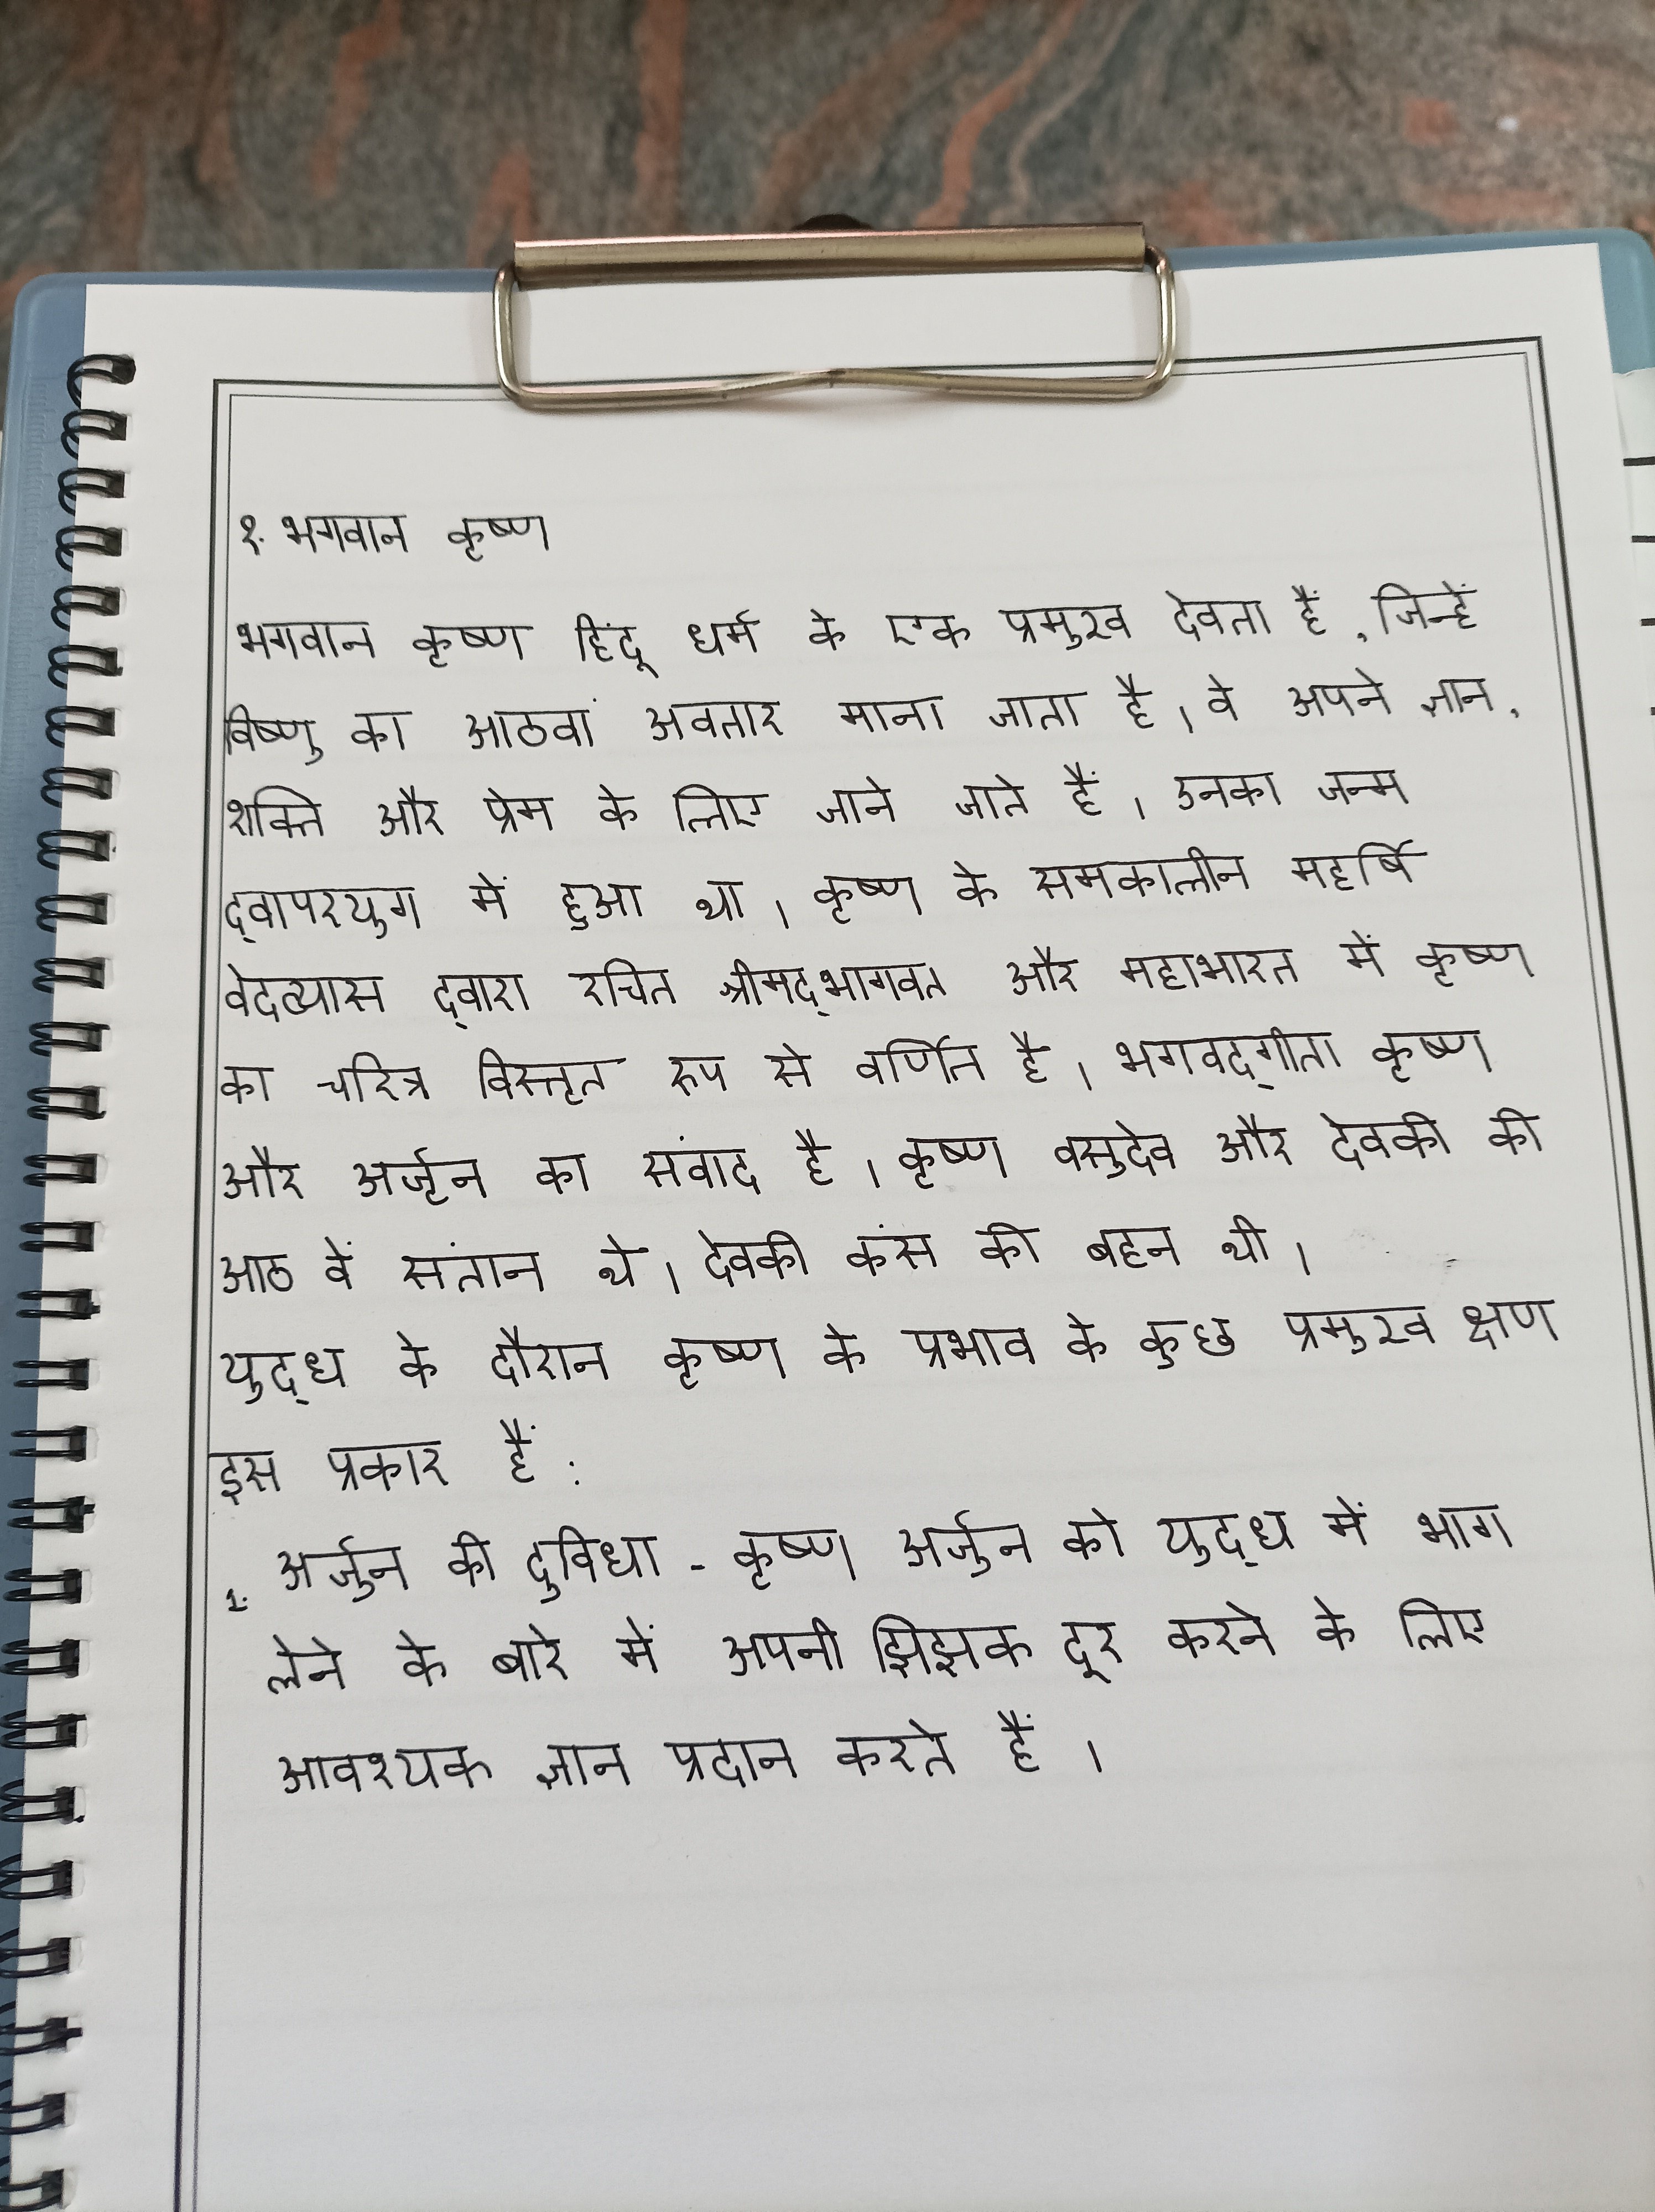 १. भगवान कृष्ण
भगवान कृष्ण हिंदू धर्म के एक प्रमुख देवता हैं, जिन्हें
विष्णु का आठवां अवतार माना जाता है। वे अपने ज्ञान,
शक्ति और प्रेम के लिए जाने जाते हैं। उनका जन्म
द्वापरयुग में हुआ था। कृष्ण के समकालीन महर्षि
वेदव्यास द्वारा रचित श्रीमद्भागवत और महाभारत में कृष्ण
का चरित्र विस्तृत रूप से वर्णित है। भगवद्गीता कृष्ण
और अर्जृन का संवाद है। कृष्ण वसुदेव और देवकी की
आठ वें संतान थे। देवकी कंस की बहन थी।
युद्ध के दौरान कृष्ण के प्रभाव के कुछ प्रमुख क्षण
इस प्रकार हैं :
1. अर्जुन की दुविधा - कृष्ण अर्जुन को युद्ध में भाग
लेने के बारे में अपनी झिझक दूर करने के लिए
आवश्यक ज्ञान प्रदान करते हैं ।